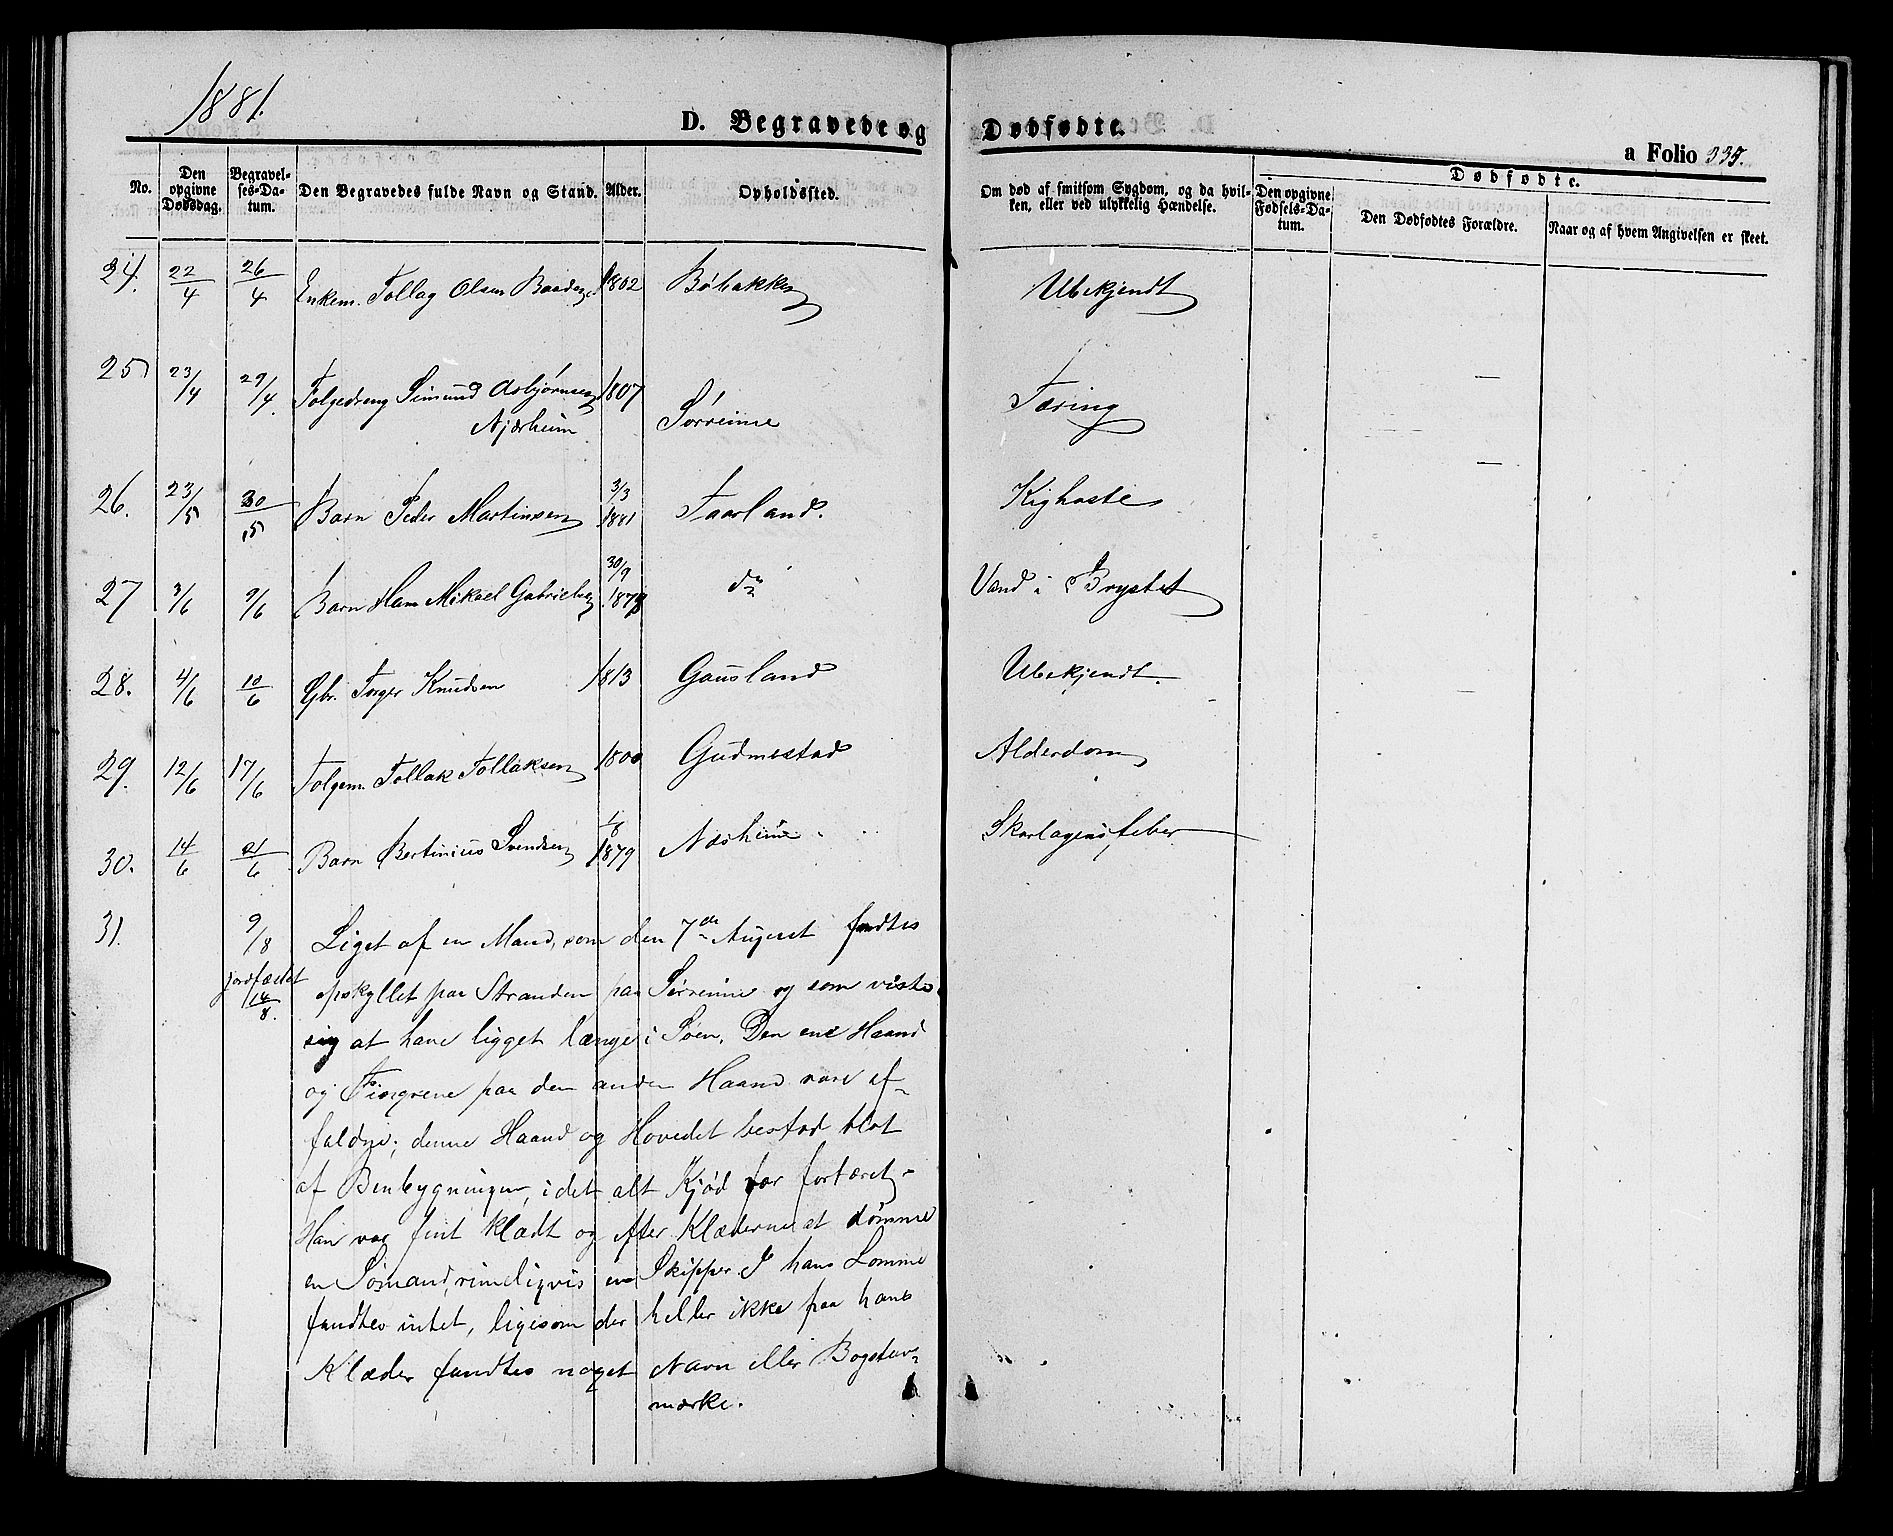 1881.
D. Begravede og Dødfødte.
a Folio 335.
No.
Den opgivne Dødsdag.
Begravel-ses-Da-tum.
Den Begravedes fulde Navn og Stand.
Alder.
Opholdssted.
Om død af smitsom Sygdom, og da hvil-ken, eller ved ulykkelig Hændelse.
Dødfødte.
Den opgivne Fødsels-Da-tum.
Den Dødfødtes Forældre.
Naar og af hvem Angivelsen er skeet.
24. 22/4 26/4 Enkem. Tollag Olsen 1802 Bøbakken Ubekjendt
25 23/4 29/4 Folgedreng Simund Asbjørnsen 1807 Sørreime Tæring
Njærheim
26. 23/5 30/5 Barn Peder Martinsen 3/3 1881 Taarland. Kighoste
27 3/6 9/6 Barn Hans Mikael Gabrielsen 30/9 1878 do Vand i Brystet
28. 4/6 10/6 Gbr. Torger Knudsen 1813 Gausland Ubekjendt.
29. 12/6 17/6 Folgem. Tollak Tollaksen 1800 Gudmestad Alderdom
30. 14/6 21/6 Barn Bertinius Svendsen 1879 Nærheim Skarlagensfeber
31. 9/8 Liget af en Mand, som den 7de August fandtes
jordfæstet 14/8. opskyllet paa Stranden paa Sørreime og som viste
sig at have ligget længe i Søen. Den ene Haand
og Fingrene paa den anden Haand vare af-
faldne; denne Haand og Hovedet bestod blot
af Benbygningen, idet alt Kjød var fortæret.
Han var fint klædt og efter Klæderne at dømme
en Sømand, rimeligvis en Skipper. I hans Lomme
fandtes intet, ligesom der heller ikke paa hans
Klæder fandtes noget Navn eller Bogstav-
mærke.